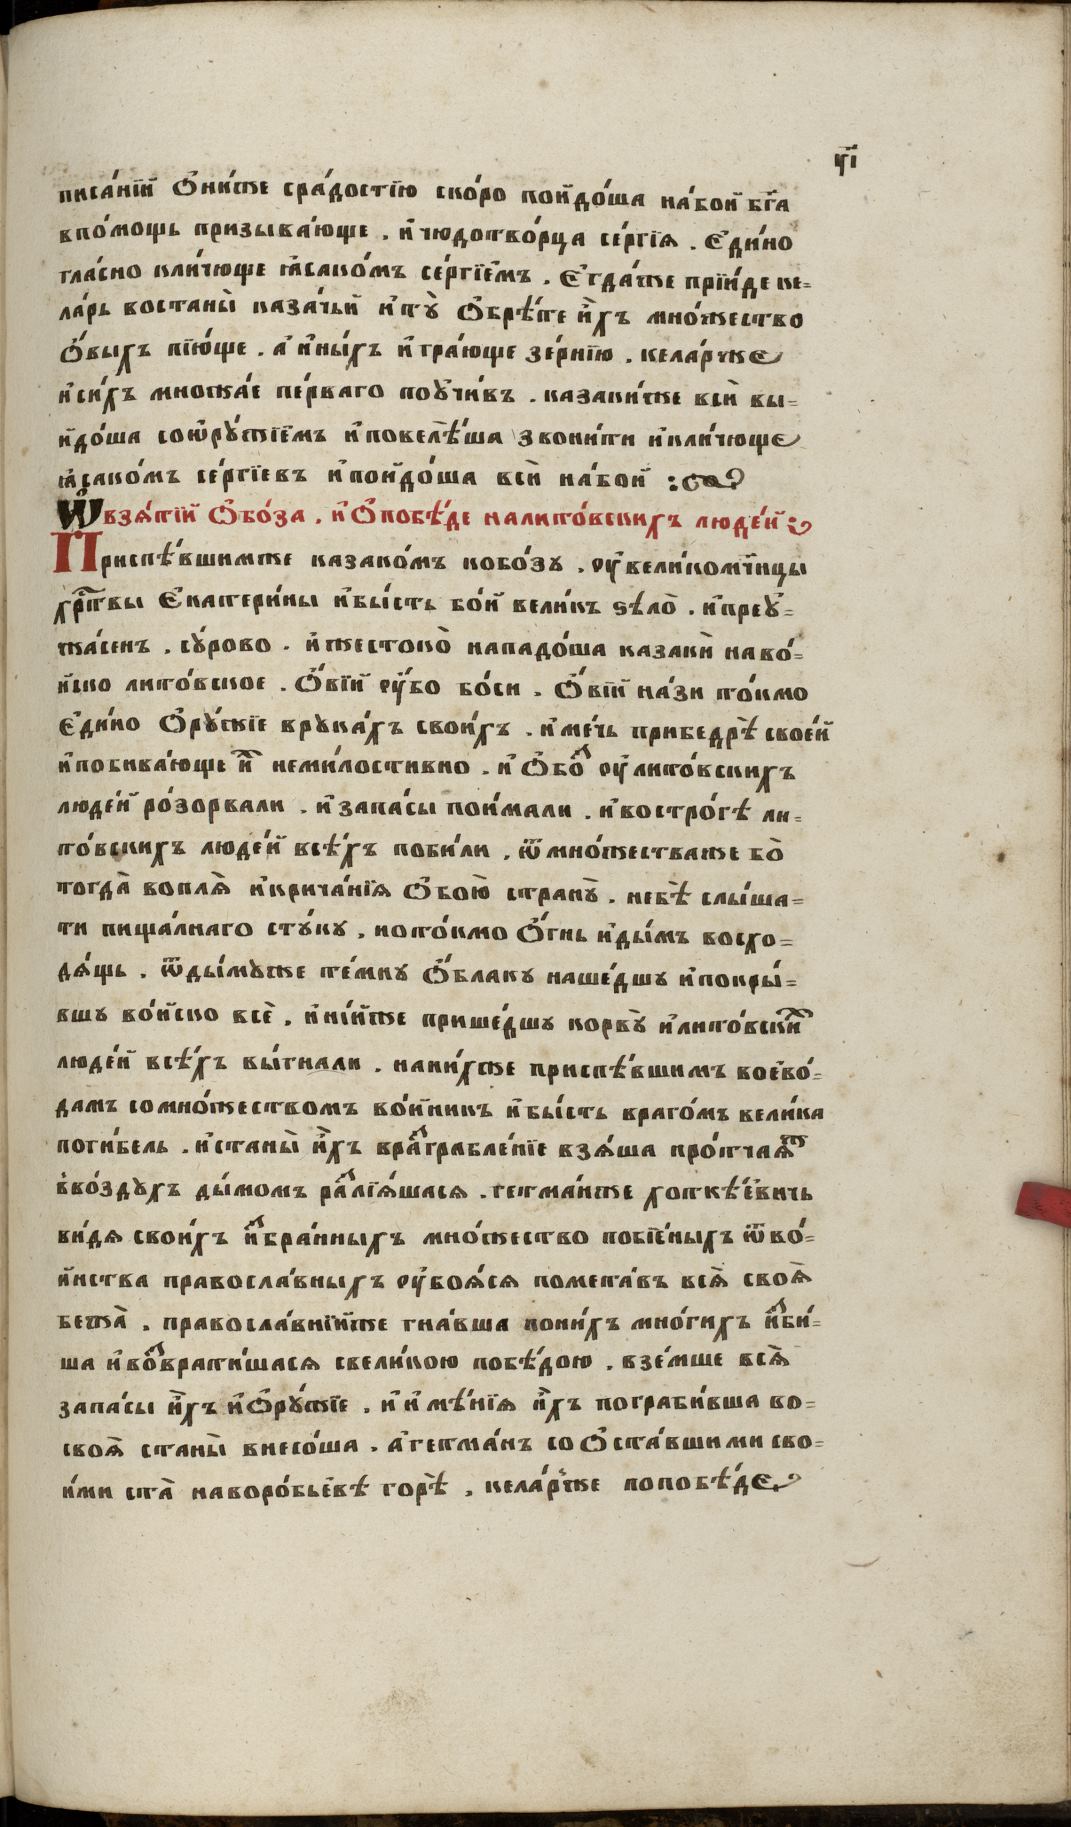 ч҃і
писа́нїй Ѻ҆ни́же сра́достїю ско́ро пойдо́ша на́бой бг҃а
впо́мощь призыва́юще . и҆чюдотво́рца се́ргїѧ . Е҆ди́но
гла́сно кли́чюще ꙗ҆сако́мъ се́ргїемъ . Е҆гда́же прїи́де ке=
ла́рь востаны̀ каза́чьи и҆тꙋ̀ Ѻ҆брѣ́те и҆̀хъ мно́жество
Ѻ҆́выхъ пїю́ще . а҆ и҆ны́хъ и҆гра́юще зе́рнїю . кела́рже
и҆си́хъ множа́е пе́рваго поꙋчи́въ . казаки́же всѝ вы=
йдо́ша соѡ҆рꙋ́жїемъ и҆повелѣ́ша звони́ти и҆кли́чюще
ꙗ҆сако́мъ се́ргїевъ и҆пойдо́ша всѝ на́бой :
Ѡ҆взѧ́тїй Ѻ҆бо́за . и҆Ѻ҆побѣ́де налито́вскихъ люде́й :
Приспѣ́вшимже казако́мъ кобо́зꙋ . ᲂу҆вели́комч҃ницы
хрⷭ҇то́вы Е҆катери́ны и҆бы́сть бо́й вели́къ ѕѣлѡ̀ . и҆преꙋ=
жа́сенъ . сꙋ́рово . и҆жестоко̀ нападо́ша казакѝ наво́=
йско лито́вское . Ѻ҆́вїй ᲂу҆́бо бо́си . Ѻ҆́вїй на́зи то́кмо
Е҆ди́но Ѻ҆рꙋ́жїе врꙋка́хъ свои́хъ . и҆ме́чь прибедрѣ̀ свое́й
и҆побива́юще и҆̀хъ неми́лостивно . и҆ Ѻ҆бо́з ᲂу҆лито́вскихъ
люде́й ро́зорвали . и҆запа́сы пои́мали . и҆востро́гѣ ли=
то́вскихъ люде́й всѣ́хъ поби́ли . ѿмно́жестваже бо̀
тогда̀ воплѧ̀ и҆крича́нїѧ Ѻ҆бою̀ странꙋ̀ . небѣ̀ слы́ша=
ти пища́лнаго стꙋ́кꙋ .ното́кмо Ѻ҆́гнь и҆ды́мъ восхо=
дѧ́щь . ѿды́мꙋже те́мнꙋ Ѻ҆́блакꙋ наше́дшꙋ и҆покры́=
вшꙋ во́йско всѐ . и҆нїи́же прише́дшꙋ корвꙋ̀ и҆лито́вских
люде́й всѣ́хъ вы́гнали . нани́хже приспѣ́вшимъ воево́=
дамъ сомно́жествомъ во́йникъ и҆бы́сть враго́мъ вели́ка
поги́бель . и҆станы̀ и҆̀хъ вразграбле́нїе взѧ́ша про́тчаѧж
во́здꙋхъ ды́момъ разлїѧ́шасѧ . гетма́нже хоткѣ́евичь
ви́дѧ свои́хъ и҆збра́нныхъ мно́жество побїе́ныхъ ѿво́=
инства правосла́вныхъ ᲂу҆боѧ́сѧ помета́въ всѧ̀ своѧ̀
бежа̀ . правосла́внїйже гна́вша пони́хъ мно́гихъ и҆зби́=
ша и҆возврати́шасѧ свели́кою побѣ́дою . взе́мше всѧ̀
запа́сы и҆̀хъ и҆Ѻ҆рꙋ́жїе . и҆ и҆мѣ́нїѧ и҆̀хъ пограби́вша во=
своѧ̀ станы̀ внесо́ша . а҆гетма́нъ со Ѻ҆ста́вшими сво=
и́ми ста̀ наворо́бьевѣ горѣ̀ . кела́рже попобѣ́де